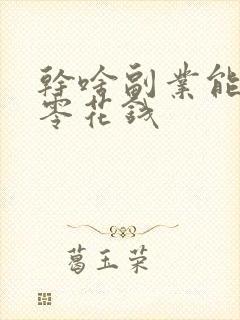 幹啥副業能
零花錢
葛玉荣